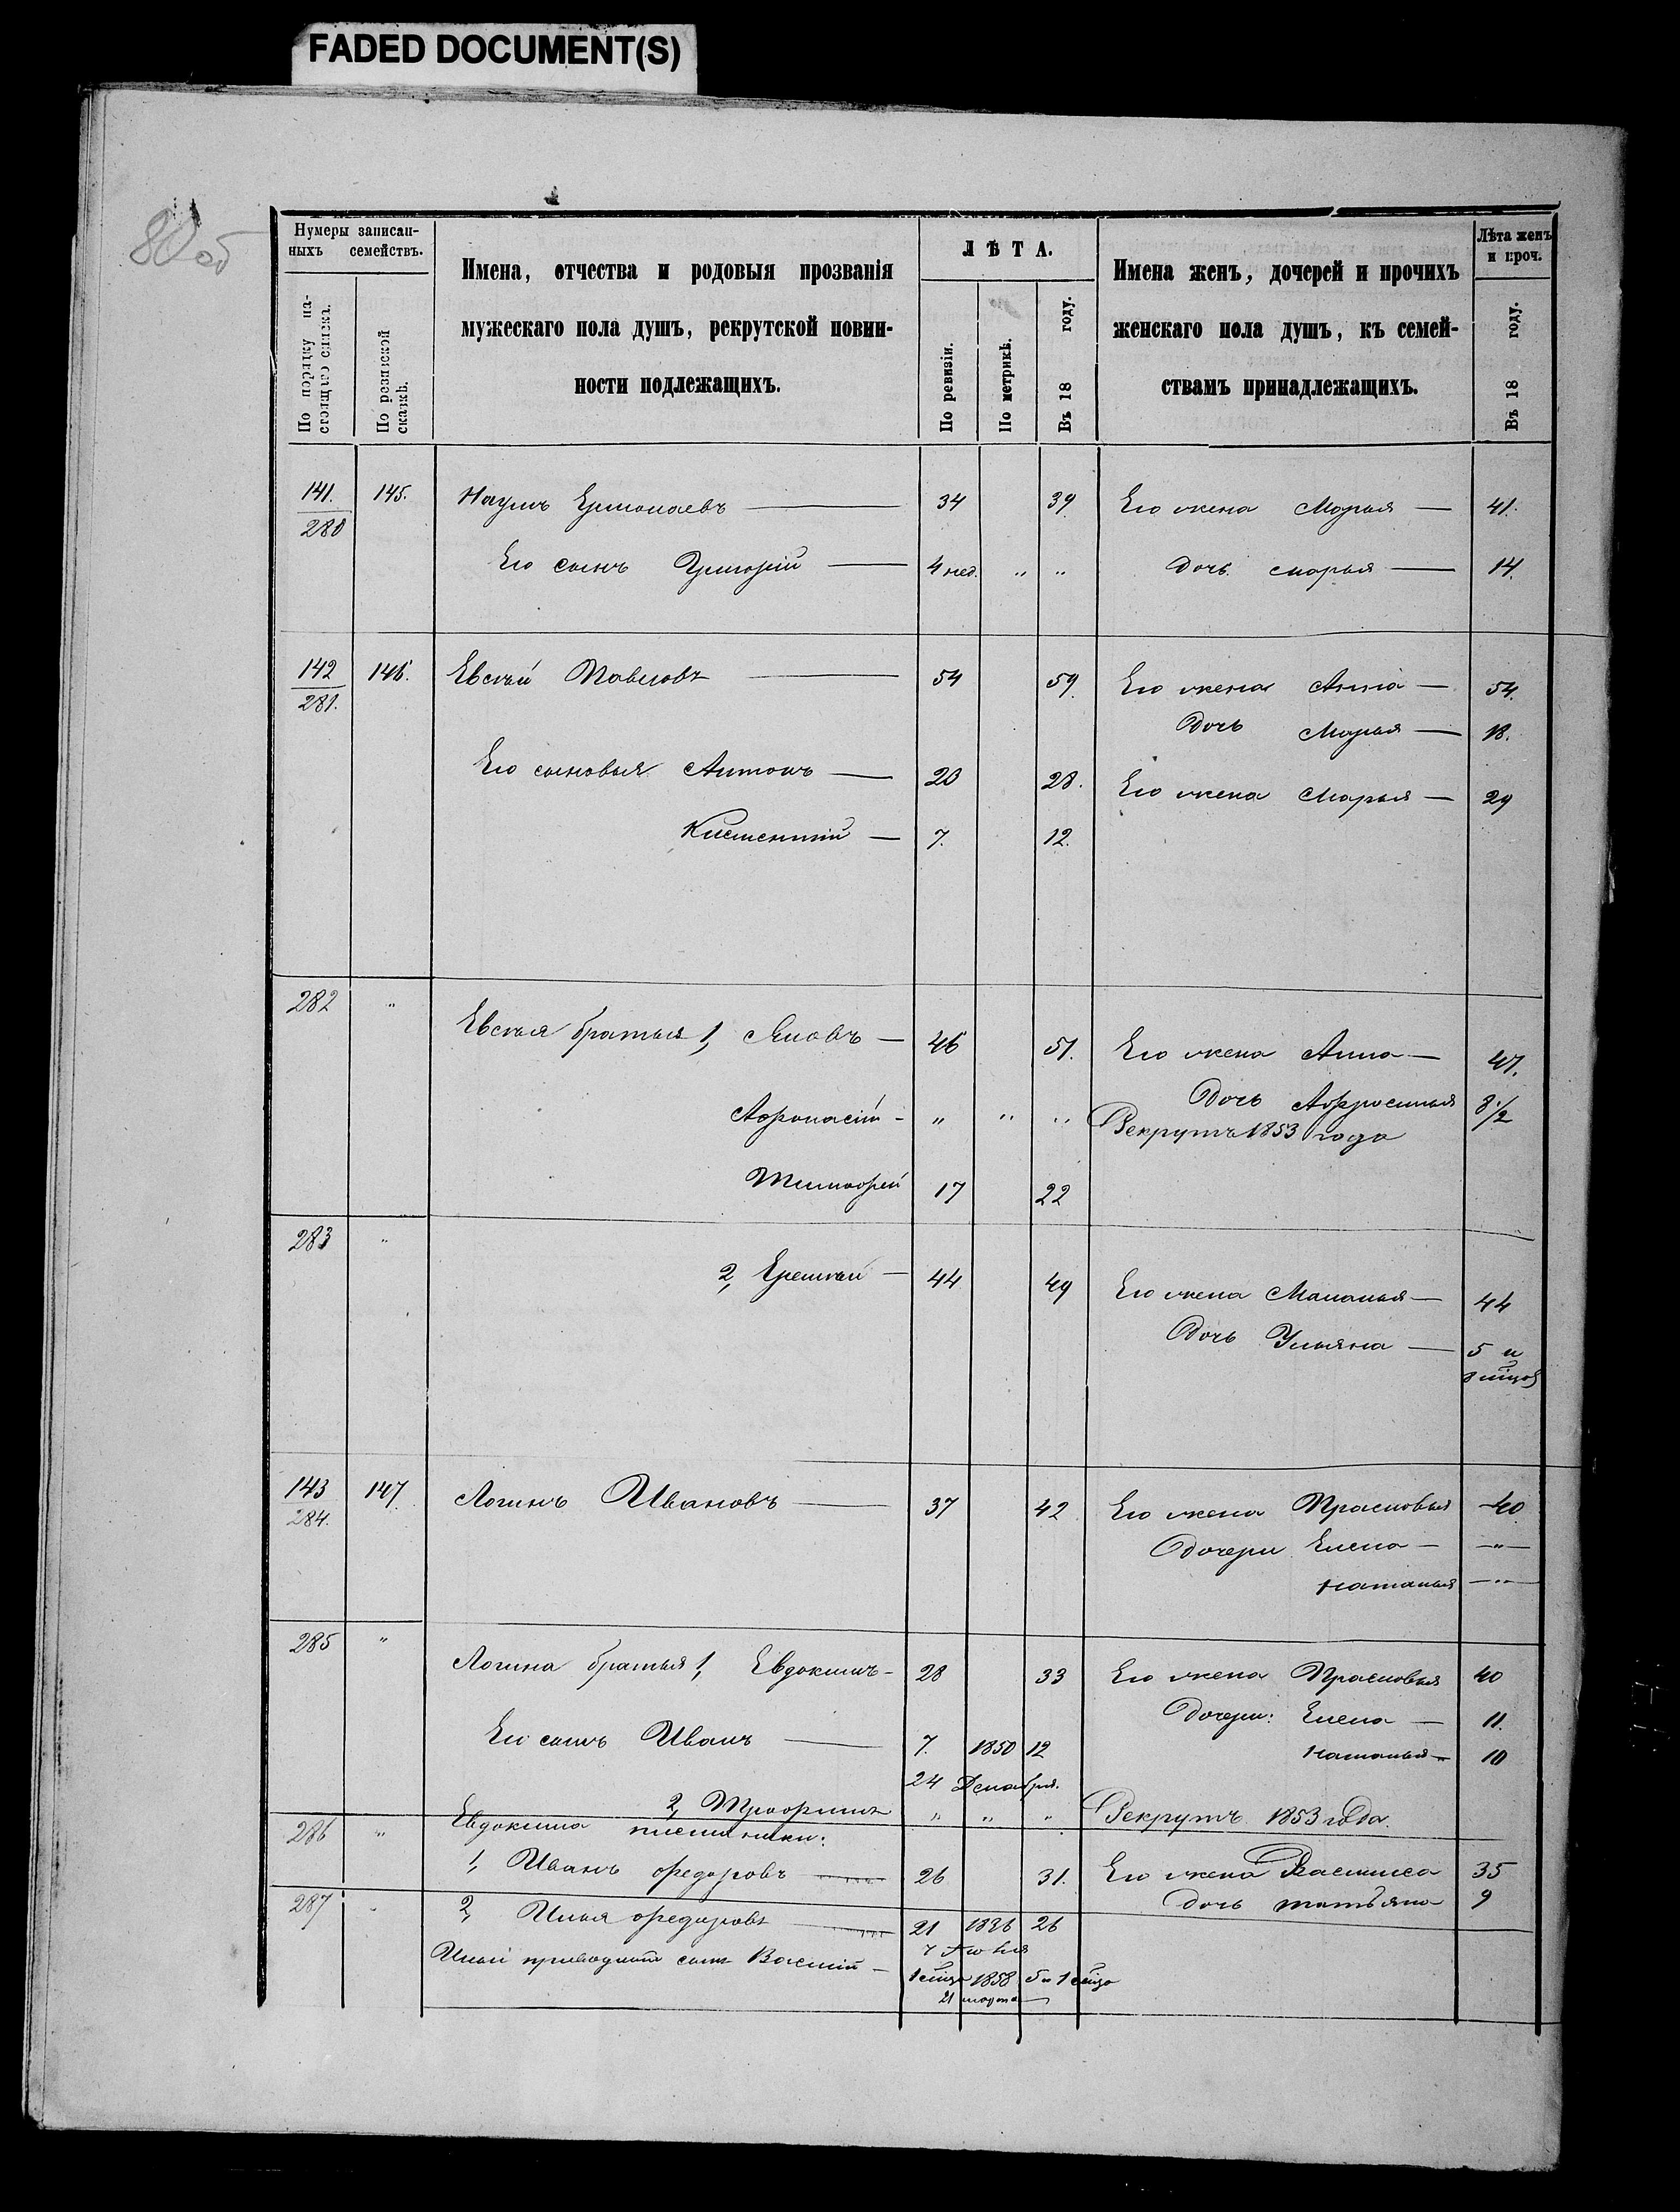 FADED DOCUMENT(S)
80 об
Нумеры записан-
ныхъ семействъ.
По порядку на-
стоящаго списка.
По ревизской
сказкѣ.
Имена, отчества и родовыя прозванія
мужескаго пола душъ, рекрутской повин-
ности подлежащихъ.
ЛѢТА.
По ревизіи.
По метрикѣ.
Въ 18 году.
Имена женъ, дочерей и прочихъ
женскаго пола душъ, къ семей-
ствамъ принадлежащихъ.
Лѣта женъ
и проч.
Въ 18 году.
141. 145. Наумъ Ермолаевъ — 34 39 Его жена Марья — 41.
280
Его сынъ Григорій — 4 нед. " " дочь Марья — 14.
142 146. Евсѣй Павловъ — 54 59 Его жена Анна — 54.
281.
Дочь Марья — 18.
Его сыновья Антонъ — 23 28. Его жена Марья — 29
Климентий — 7. 12.
282 "
Евсѣя братья 1, Яковъ — 46 51. Его жена Анна — 47.
Дочь Афросинья 8 1/2
Афонасій - " " " Рекрутъ 1853 года
Тимофей 17 22
283 "
2, Еремѣй — 44 49 Его жена Маланья — 44
Дочь Ульяна — 5 и
143 147. Логинъ Ивановъ — 37 42 Его жена Прасковья 40
284.
Дочери Елена — — " —
Наталья — " —
285 "
Логина братья 1, Евдокимъ - 28 33 Его жена Прасковья 40
Дочери: Елена — 11.
Его сынъ Иванъ — 7. 1850 12 Наталья - 10
24 Декабря.
2, Трофимъ " " " Рекрутъ 1853 года.
286 " Евдокима племянники:
1, Иванъ Федоровъ — 26 31. Его жена Василиса 35
дочь Татьяна 9
287 " 2, Илья Федоровъ — 21 1836 26
Ильи приводный сынъ Василій — 1 мѣца 1858 5 и 1 мѣцъ
21 марта —